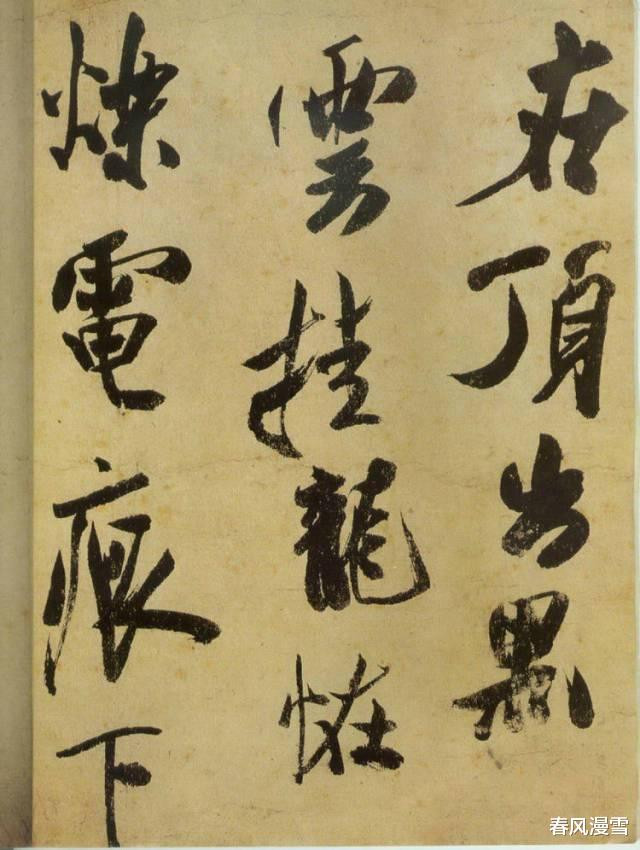 在頂出黑
雲挂龍恠
爍電痕下
春风漫雪